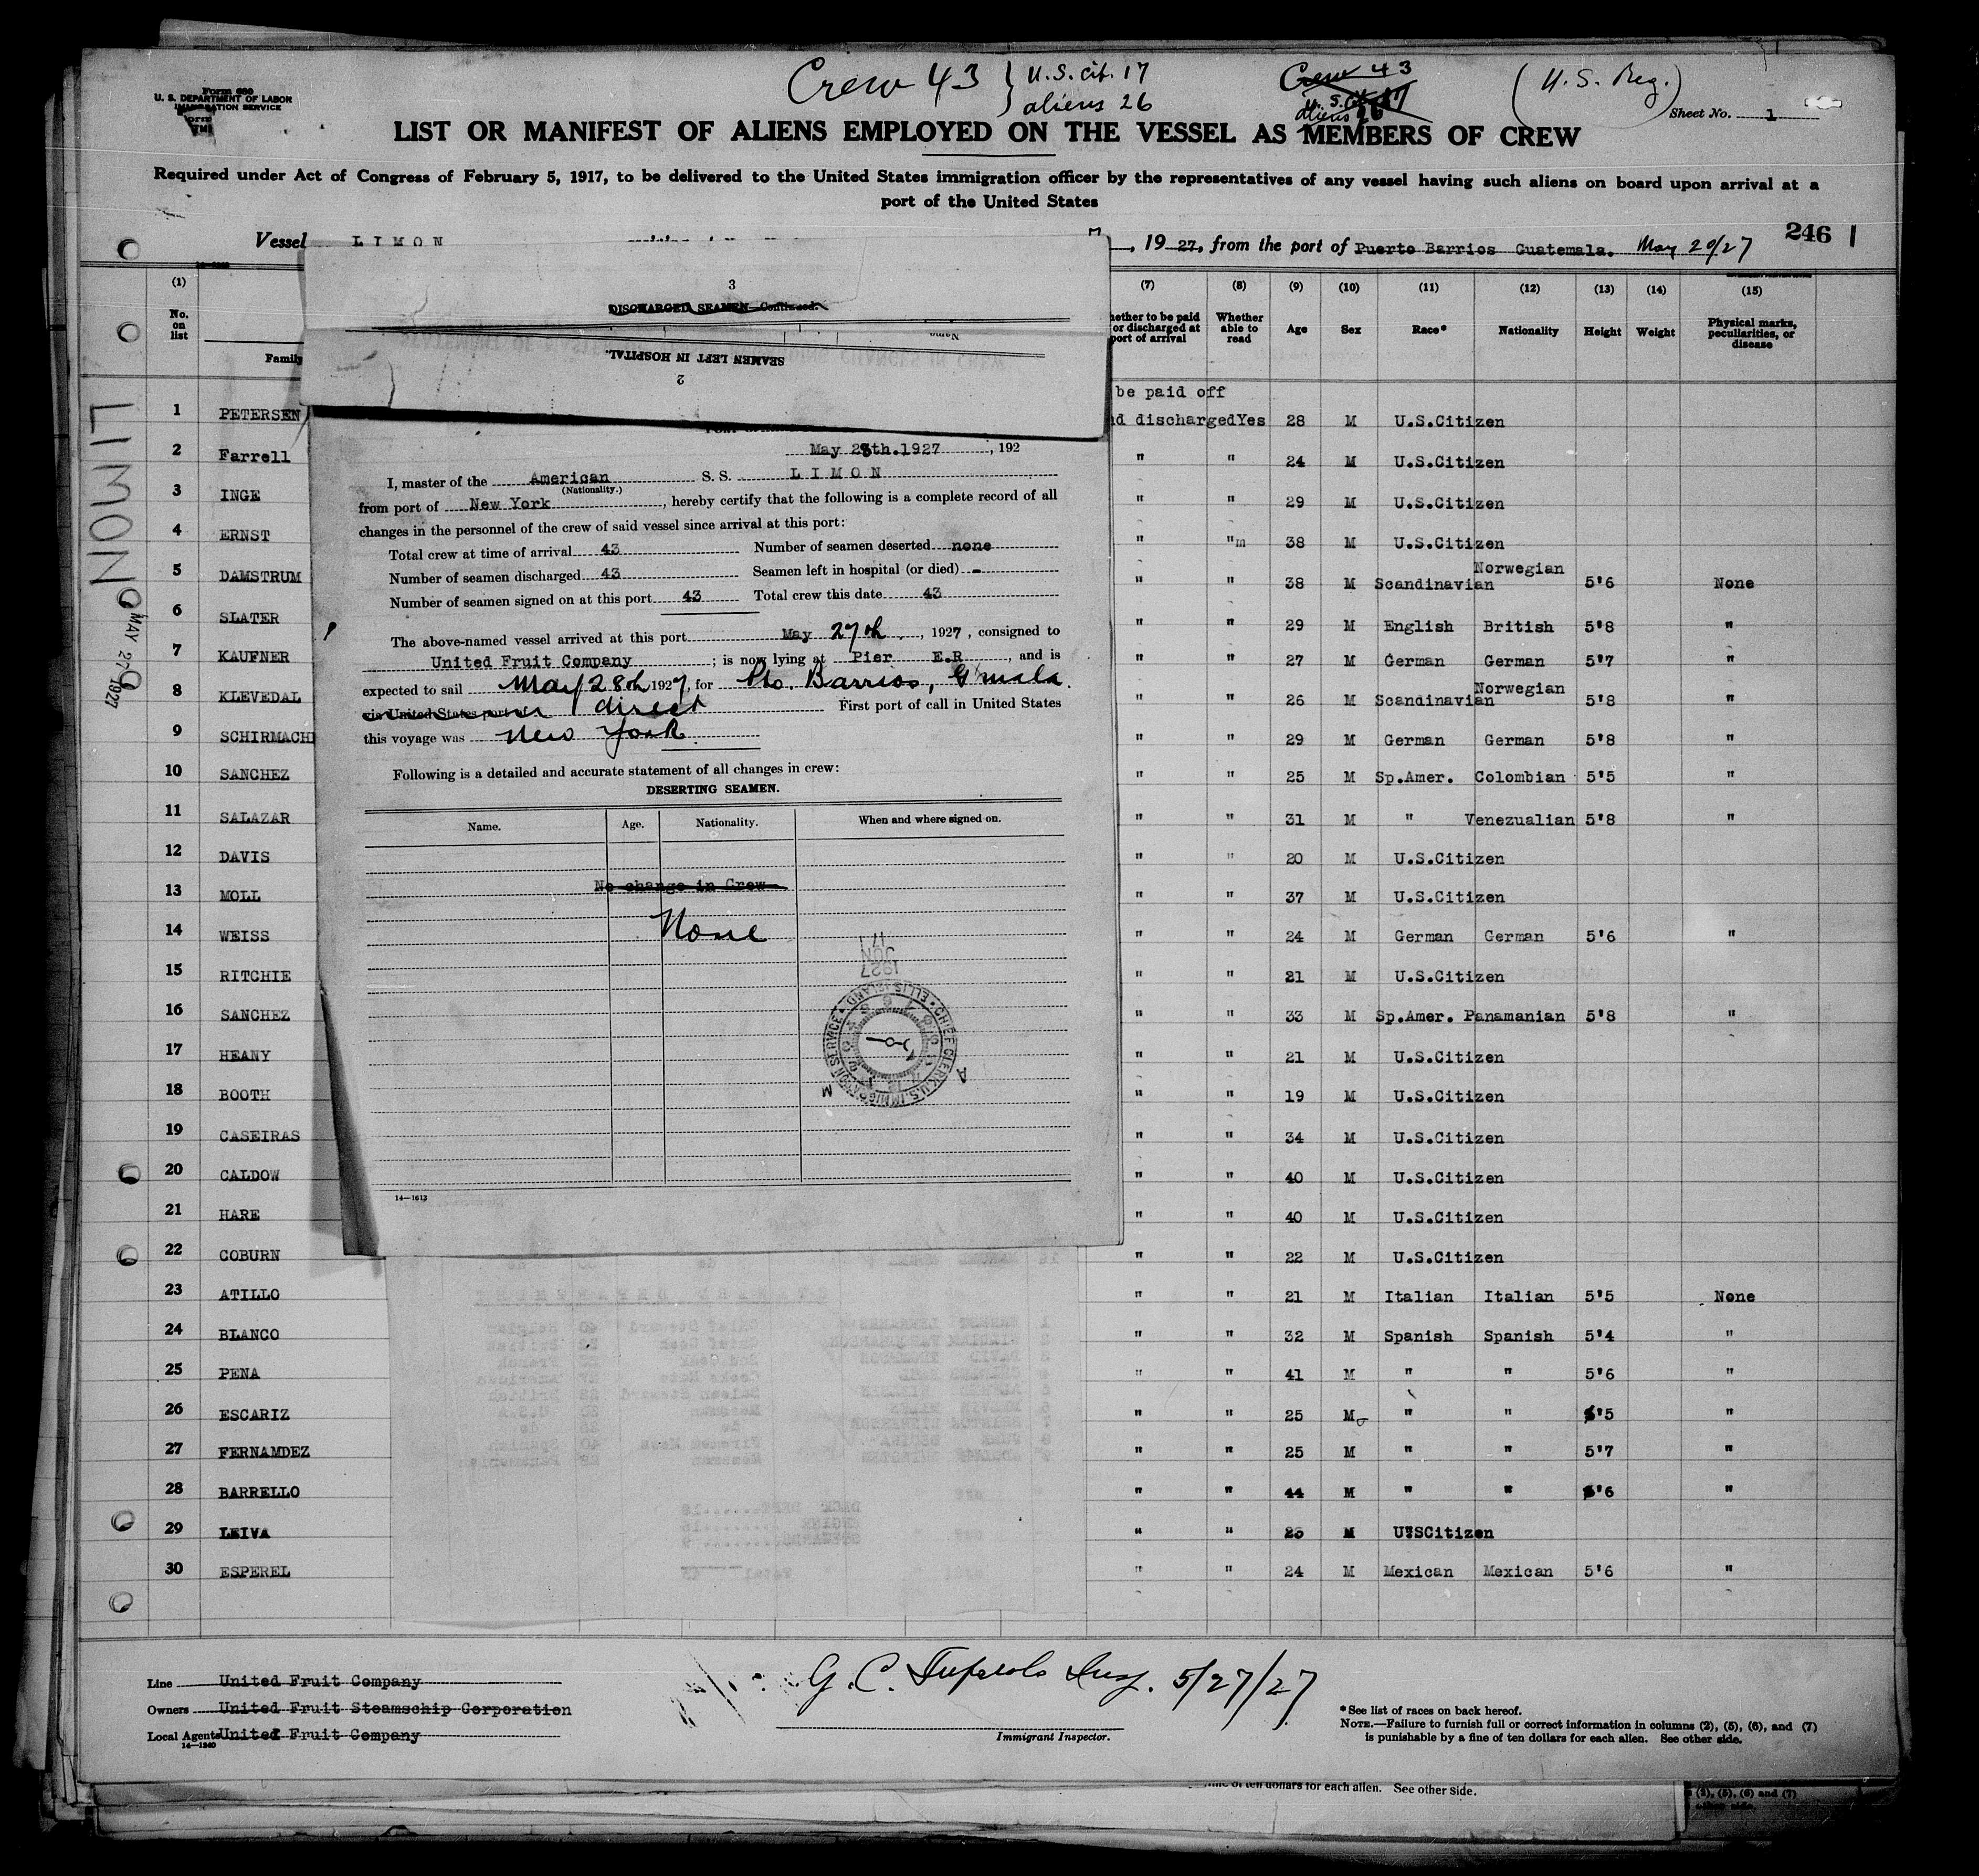 Form 680
U. S. DEPARTMENT OF LABOR
IMMIGRATION SERVICE
Crew 43 } U.S. cit. 17
aliens 26
Crew 43
U.S. Cit 17
aliens 26
(U.S. Reg.)
Sheet No. 1
LIST OR MANIFEST OF ALIENS EMPLOYED ON THE VESSEL AS MEMBERS OF CREW
Required under Act of Congress of February 5, 1917, to be delivered to the United States immigration officer by the representatives of any vessel having such aliens on board upon arrival at a
port of the United States
Vessel LIMON , 19 27, from the port of Puerto Barrios Guatemala. May 20/27
246 1
(1) (7) (8) (9) (10) (11) (12) (13) (14) (15)
No. on list Family
ether to be paid or discharged at port of arrival
Whether able to read
Age Sex Race* Nationality Height Weight
Physical marks, peculiarities, or disease
be paid off
1 PETERSEN d discharged Yes 28 M U.S.Citizen
2 Farrell " " 24 M U.S.Citizen
3 INGE " " 29 M U.S.Citizen
4 ERNST " "m 38 M U.S.Citizen
5 DAMSTRUM " " 38 M Scandinavian Norwegian 5'6 None
6 SLATER " " 29 M English British 5'8 "
7 KAUFNER " " 27 M German German 5'7 "
8 KLEVEDAL " " 26 M Scandinavian Norwegian 5'8 "
9 SCHIRMACH " " 29 M German German 5'8 "
10 SANCHEZ " " 25 M Sp.Amer. Colombian 5'5 "
11 SALAZAR " " 31 M " Venezualian 5'8 "
12 DAVIS " " 20 M U.S.Citizen
13 MOLL " " 37 M U.S.Citizen
14 WEISS " " 24 M German German 5'6 "
15 RITCHIE " " 21 M U.S.Citizen
16 SANCHEZ " " 33 M Sp.Amer. Panamanian 5'8 "
17 HEANY " " 21 M U.S.Citizen
18 BOOTH " " 19 M U.S.Citizen
19 CASEIRAS " " 34 M U.S.Citizen
20 CALDOW " " 40 M U.S.Citizen
21 HARE " " 40 M U.S.Citizen
22 COBURN " " 22 M U.S.Citizen
23 ATILLO " " 21 M Italian Italian 5'5 None
24 BLANCO " " 32 M Spanish Spanish 5'4 "
25 PENA " " 41 M " " 5'6 "
26 ESCARIZ " " 25 M " " 5'5 "
27 FERNAMDEZ " " 25 M " " 5'7 "
28 BARRELLO " " 44 M " " 5'6 "
29 LEIVA " " M U"SCitizen
30 ESPEREL " " 24 M Mexican Mexican 5'6 "
LIMON
MAY 27 1927
3
DISCHARGED SEAMEN—Continued.
Name
SEAMEN LEFT IN HOSPITAL.
2
May 28th.1927, 192
I, master of the American S. S. LIMON
(Nationality.)
from port of New York, hereby certify that the following is a complete record of all
changes in the personnel of the crew of said vessel since arrival at this port:
Total crew at time of arrival 43 Number of seamen deserted none
Number of seamen discharged 43 Seamen left in hospital (or died) -
Number of seamen signed on at this port 43 Total crew this date 43
The above-named vessel arrived at this port May 27th, 1927, consigned to
United Fruit Company; is now lying at Pier E.R, and is
expected to sail May 28th 1927, for Pto. Barrios, G'mala.
via United States port direct First port of call in United States
this voyage was New York
Following is a detailed and accurate statement of all changes in crew:
DESERTING SEAMEN.
Name. Age. Nationality. When and where signed on.
No change in Crew
None
1927 JUN 17
CHIEF CLERK U.S. IMMIGRATION SERVICE ELLIS ISLAND
A M
14—1613
Line United Fruit Company
Owners United Fruit Steamschip Corporation
Local Agents United Fruit Company
14—1240
G. C. Insp. 5/27/27
Immigrant Inspector.
*See list of races on back hereof.
NOTE.—Failure to furnish full or correct information in columns (2), (5), (6), and (7)
is punishable by a fine of ten dollars for each alien. See other side.
of ten dollars for each alien. See other side.
(2), (5), (6) and (7)
other side.